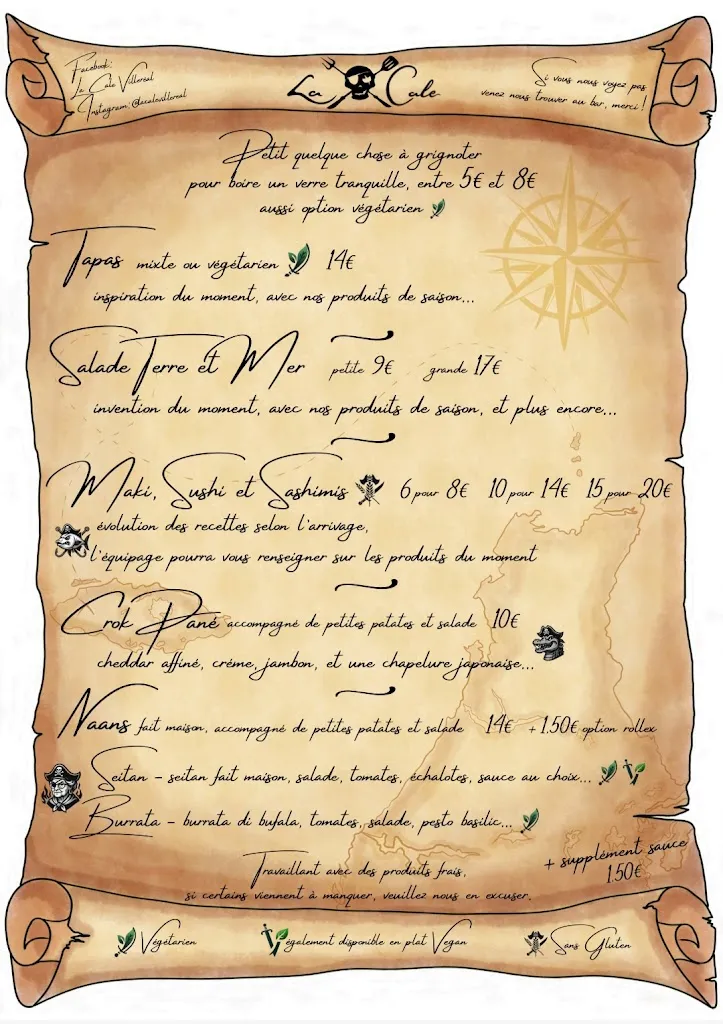 Facebook:
La Cale Villereal
Instagram: @lacalevillereal
La Cale
Si vous nous voyez pas,
venez nous trouver au bar, merci !
Petit quelque chose à grignoter
pour boire un verre tranquille, entre 5€ et 8€
aussi option végétarien
Tapas mixte ou végétarien 14€
inspiration du moment, avec nos produits de saison...
Salade Terre et Mer petite 9€ grande 17€
invention du moment, avec nos produits de saison, et plus encore...
Maki, Sushi et Sashimis 6 pour 8€ 10 pour 14€ 15 pour 20€
évolution des recettes selon l'arrivage,
l'équipage pourra vous renseigner sur les produits du moment
Crok Pané accompagné de petites patates et salade 10€
cheddar affiné, crème, jambon, et une chapelure japonaise...
Naans fait maison, accompagné de petites patates et salade 14€ +1.50€ option rollex
Seitan - seitan fait maison, salade, tomates, échalotes, sauce au choix...
Burrata - burrata di bufala, tomates, salade, pesto basilic...
Travaillant avec des produits frais,
si certains viennent à manquer, veuillez nous en excuser.
+ supplément sauce
1.50€
Végétarien
également disponible en plat Vegan
Sans Gluten